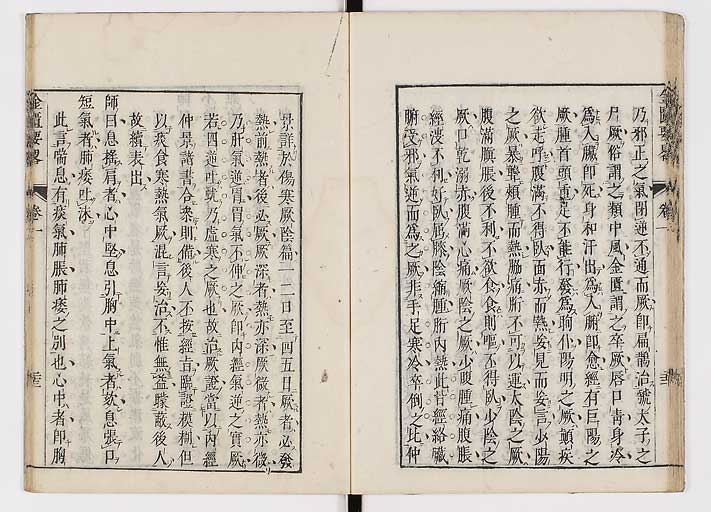 乃邪正之氣閉逆不通而厥即扁鵲治虢太子之
尸厥俗謂之類中風金匱謂之卒厥唇口青身冷
為入臟即死身和汗出為入腑即愈經有巨陽之
厥腫首頭重足不能行發為眴仆陽明之厥顛疾
欲走呼腹滿不得臥面赤而熱妄見而妄言少陽
之厥暴聾頰腫而熱脇痛䯒不可以運太陰之厥
腹滿䐜脹後不利不欲食食則嘔不得臥少陰之
厥口乾溺赤腹滿心痛厥陰之厥少腹腫痛腹脹
涇溲不利好臥屈膝陰縮腫䯒內熱此皆經絡臟
腑受邪氣逆而為之厥非手足寒冷卒倒之比仲
景詳於傷寒厥陰篇一二日至四五日厥者必發
熱前熱者後必厥厥深者熱亦深厥微者熱亦微
乃肝氣逆胃胃氣不伸之厥即內經氣逆之實厥
若四逆吐虢乃虛寒之厥也故治厥證當以內經
仲景諸書合叅則備後人不按經旨臨證模糊但
以痰食寒熱氣厥混言妄治不惟無益縣蔽後人
故續表出
師曰息搖肩者心中堅息引胸中上氣者欬息張口
短氣者肺痿吐沫
此言喘息有痰氣肺脹肺痿之別也心中者即胸
金匱要畧
卷一